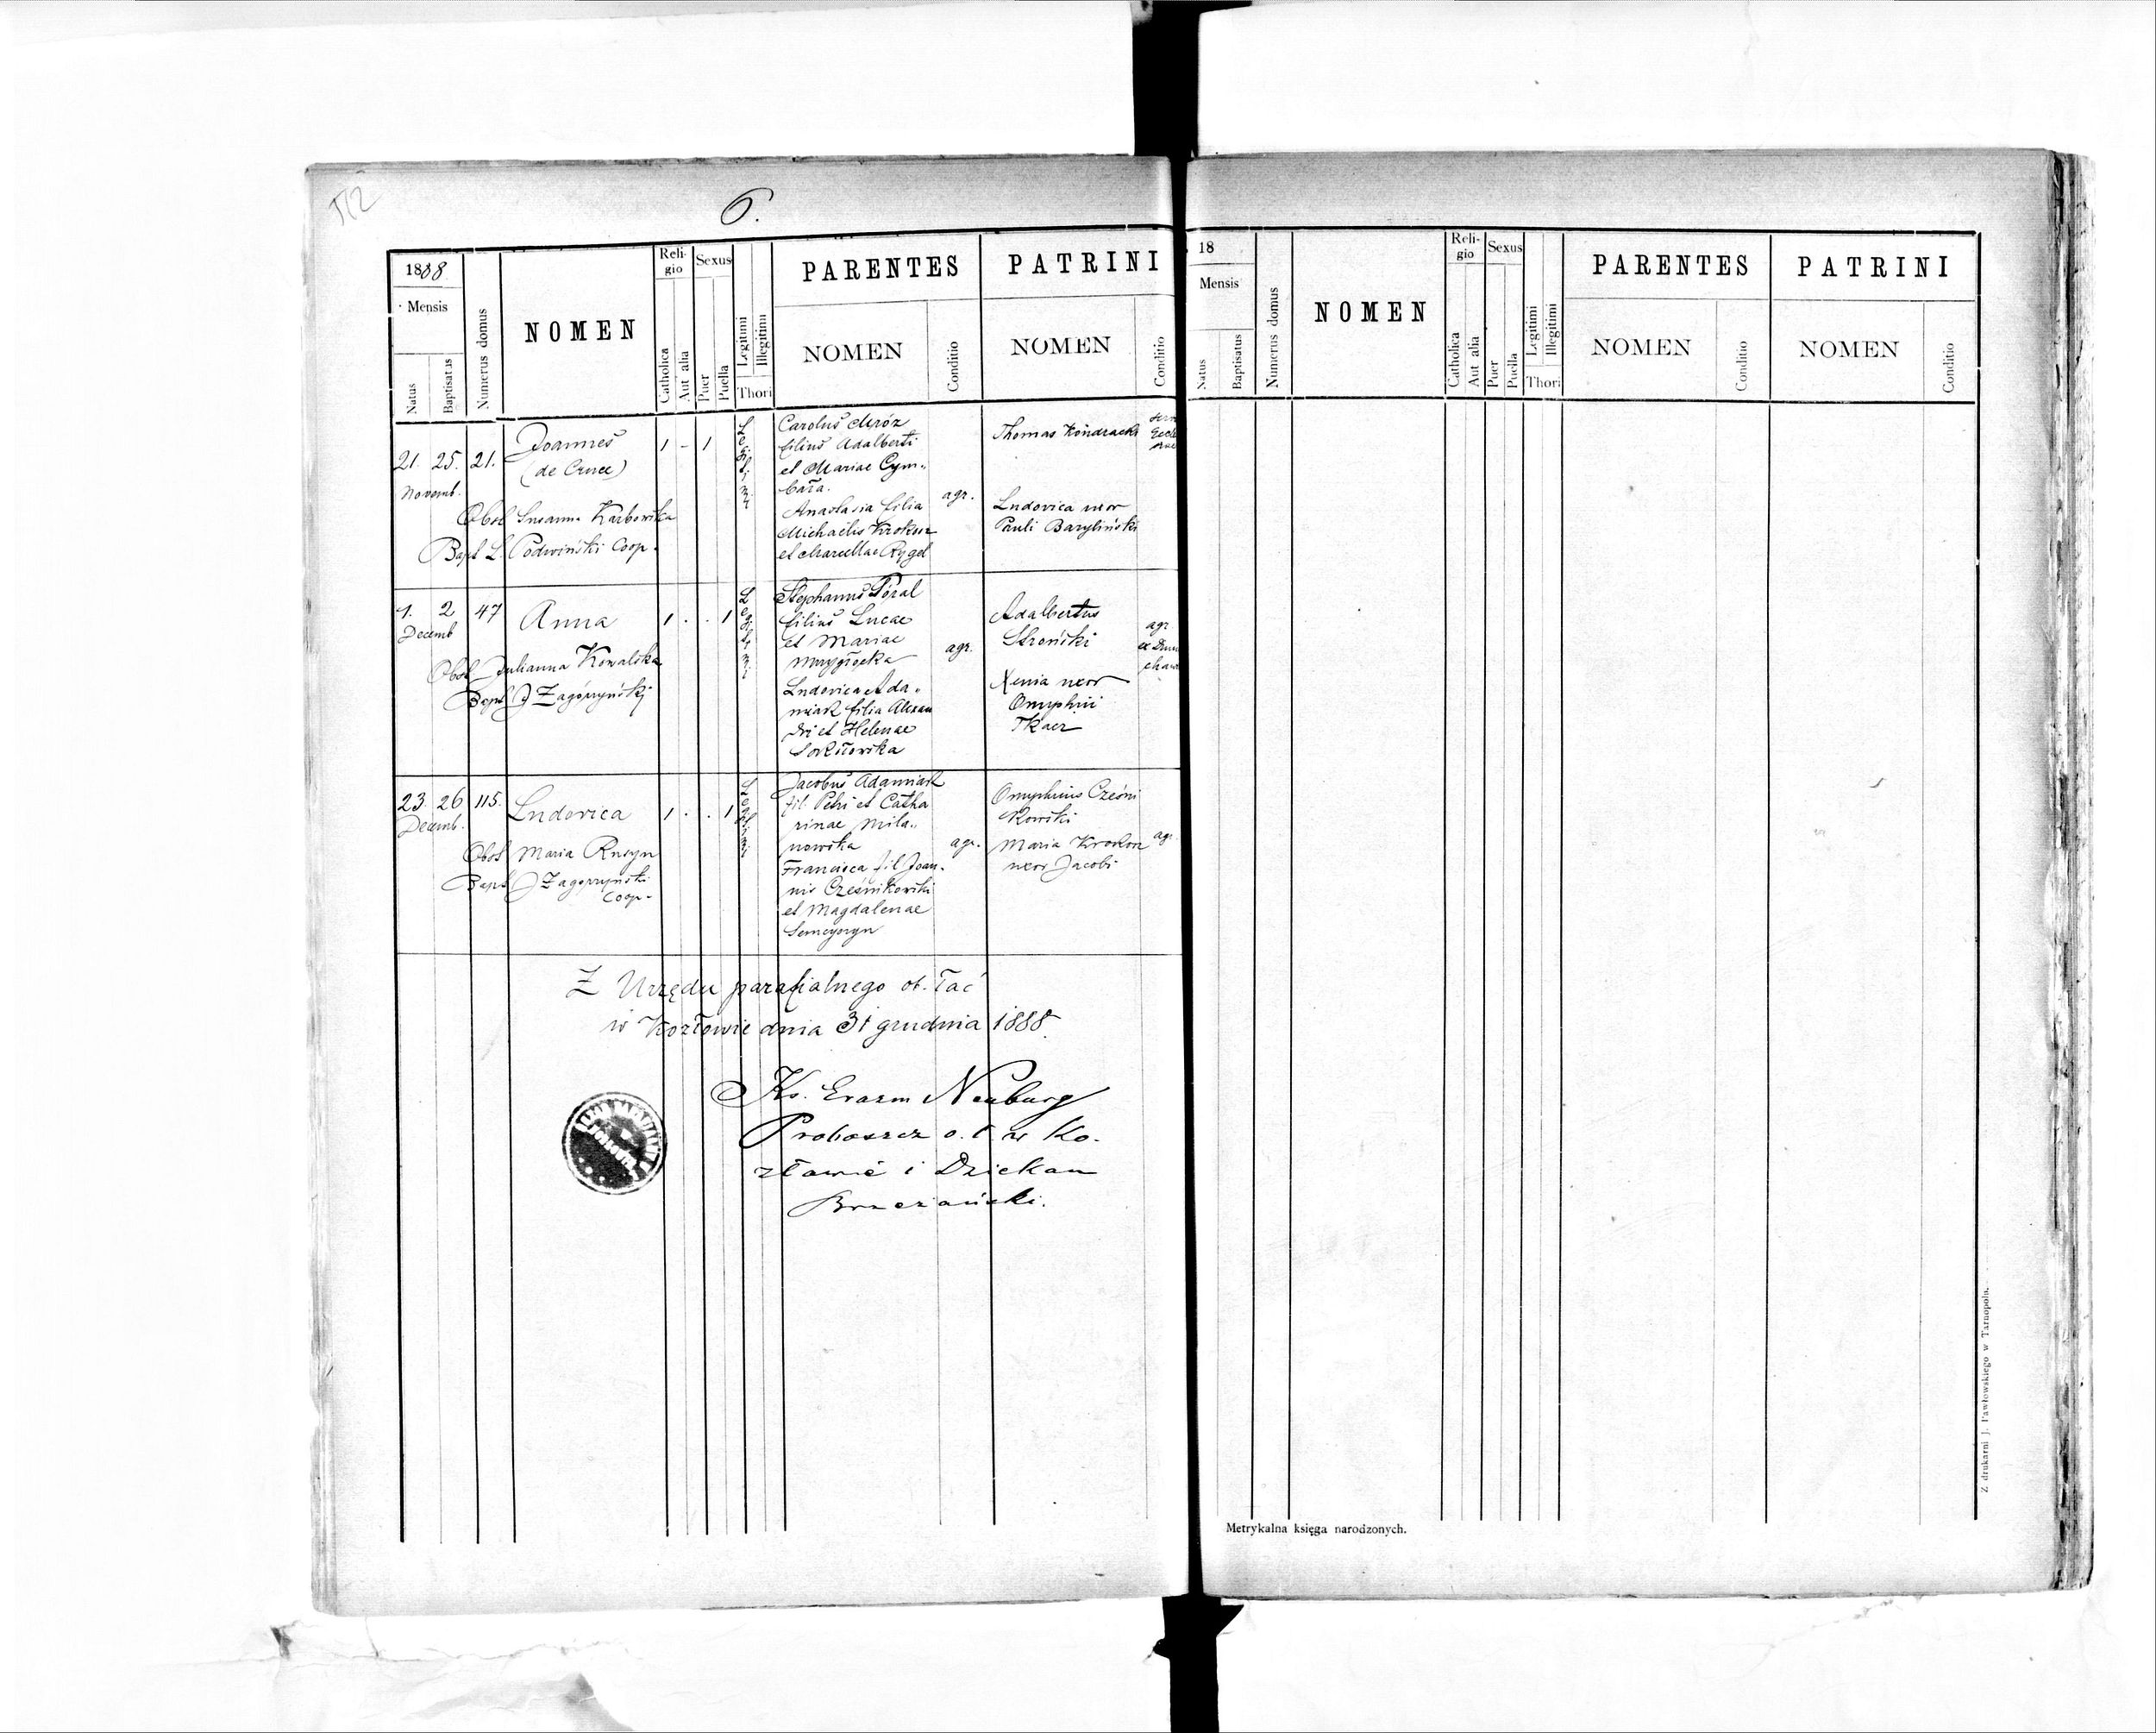 512
6.
1888
Mensis
Natus
Baptisatus
Numerus domus
NOMEN
Religio
Catholica
Aut alia
Sexus
Puer
Puella
Legitimi
Illegitimi
Thori
PARENTES
NOMEN
Conditio
PATRINI
NOMEN
Conditio
21. 25. 21.
Novemb.
Joannes
(de Cruce)
1 - 1
Legitimi
Carolus Mróz
filius Adalberti
et Mariae Cym-
bała.
Anastasia filia
Michaelis Krokosz
et Marcellae Rygel
agr.
Thomas Kondracki
Ludovica uxor
Pauli Baryliński
Obst Susanna Karbowska
Bapt L. Podwiński Coop.
1. 2 47
Decemb
Anna
1 . . 1
Legitimi
Stephanus Góral
filius Lucae
et Mariae
Ludovica Ada-
miak filia Alexan
dri et Helenae
Sokołowska
agr.
Adalbertus
Stroński
agr.
Xenia uxor
Onuphrii
Tkacz
Obst Julianna Kowalska
Bapt J Zagórzyński
23. 26 115.
Decemb.
Ludovica
1 . . 1
Legitimi
Jacobus Adamiak
fil. Petri et Catha
rinae Mila-
nowska
Francisca fil Joan-
nis Cześnikowski
et Magdalenae
Semczyszyn
agr.
Onuphrius Cześni
kowski
Maria Krokosz
uxor Jacobi
agr.
Obst Maria Rusyn
Bapt J Zagórzyński
Coop-
Z Urzędu parafialnego ob. łac
w Kozłowie dnia 31 grudnia 1888.
Ks. Erazm Neuburg
Proboszcz o. ł. w Ko-
złowie i Dziekan
Brzeżański.
18
Mensis
Natus
Baptisatus
Numerus domus
NOMEN
Religio
Catholica
Aut alia
Sexus
Puer
Puella
Legitimi
Illegitimi
Thori
PARENTES
NOMEN
Conditio
PATRINI
NOMEN
Conditio
Metrykalna księga narodzonych.
Z drukarni J. Pawłowskiego w Tarnopolu.